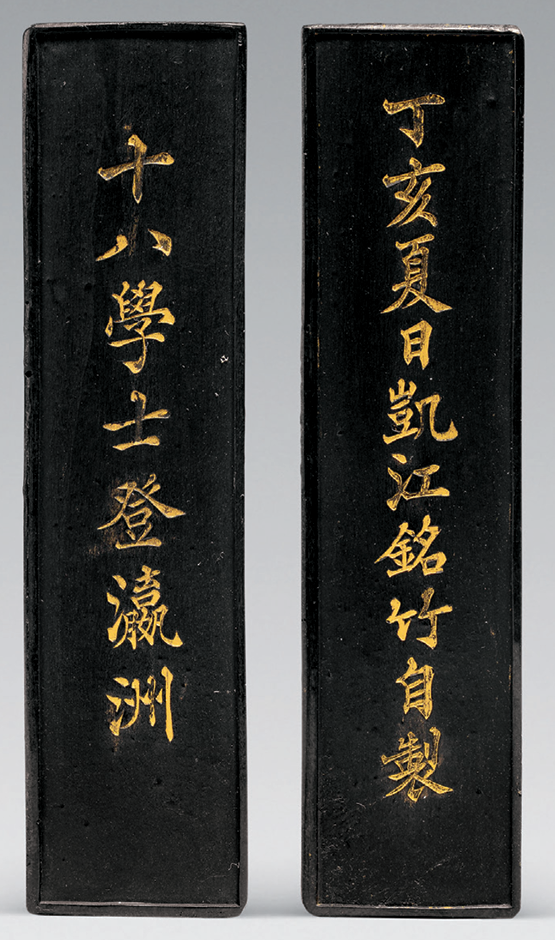 丁亥夏日凱江銘竹自製
十八學士登瀛洲